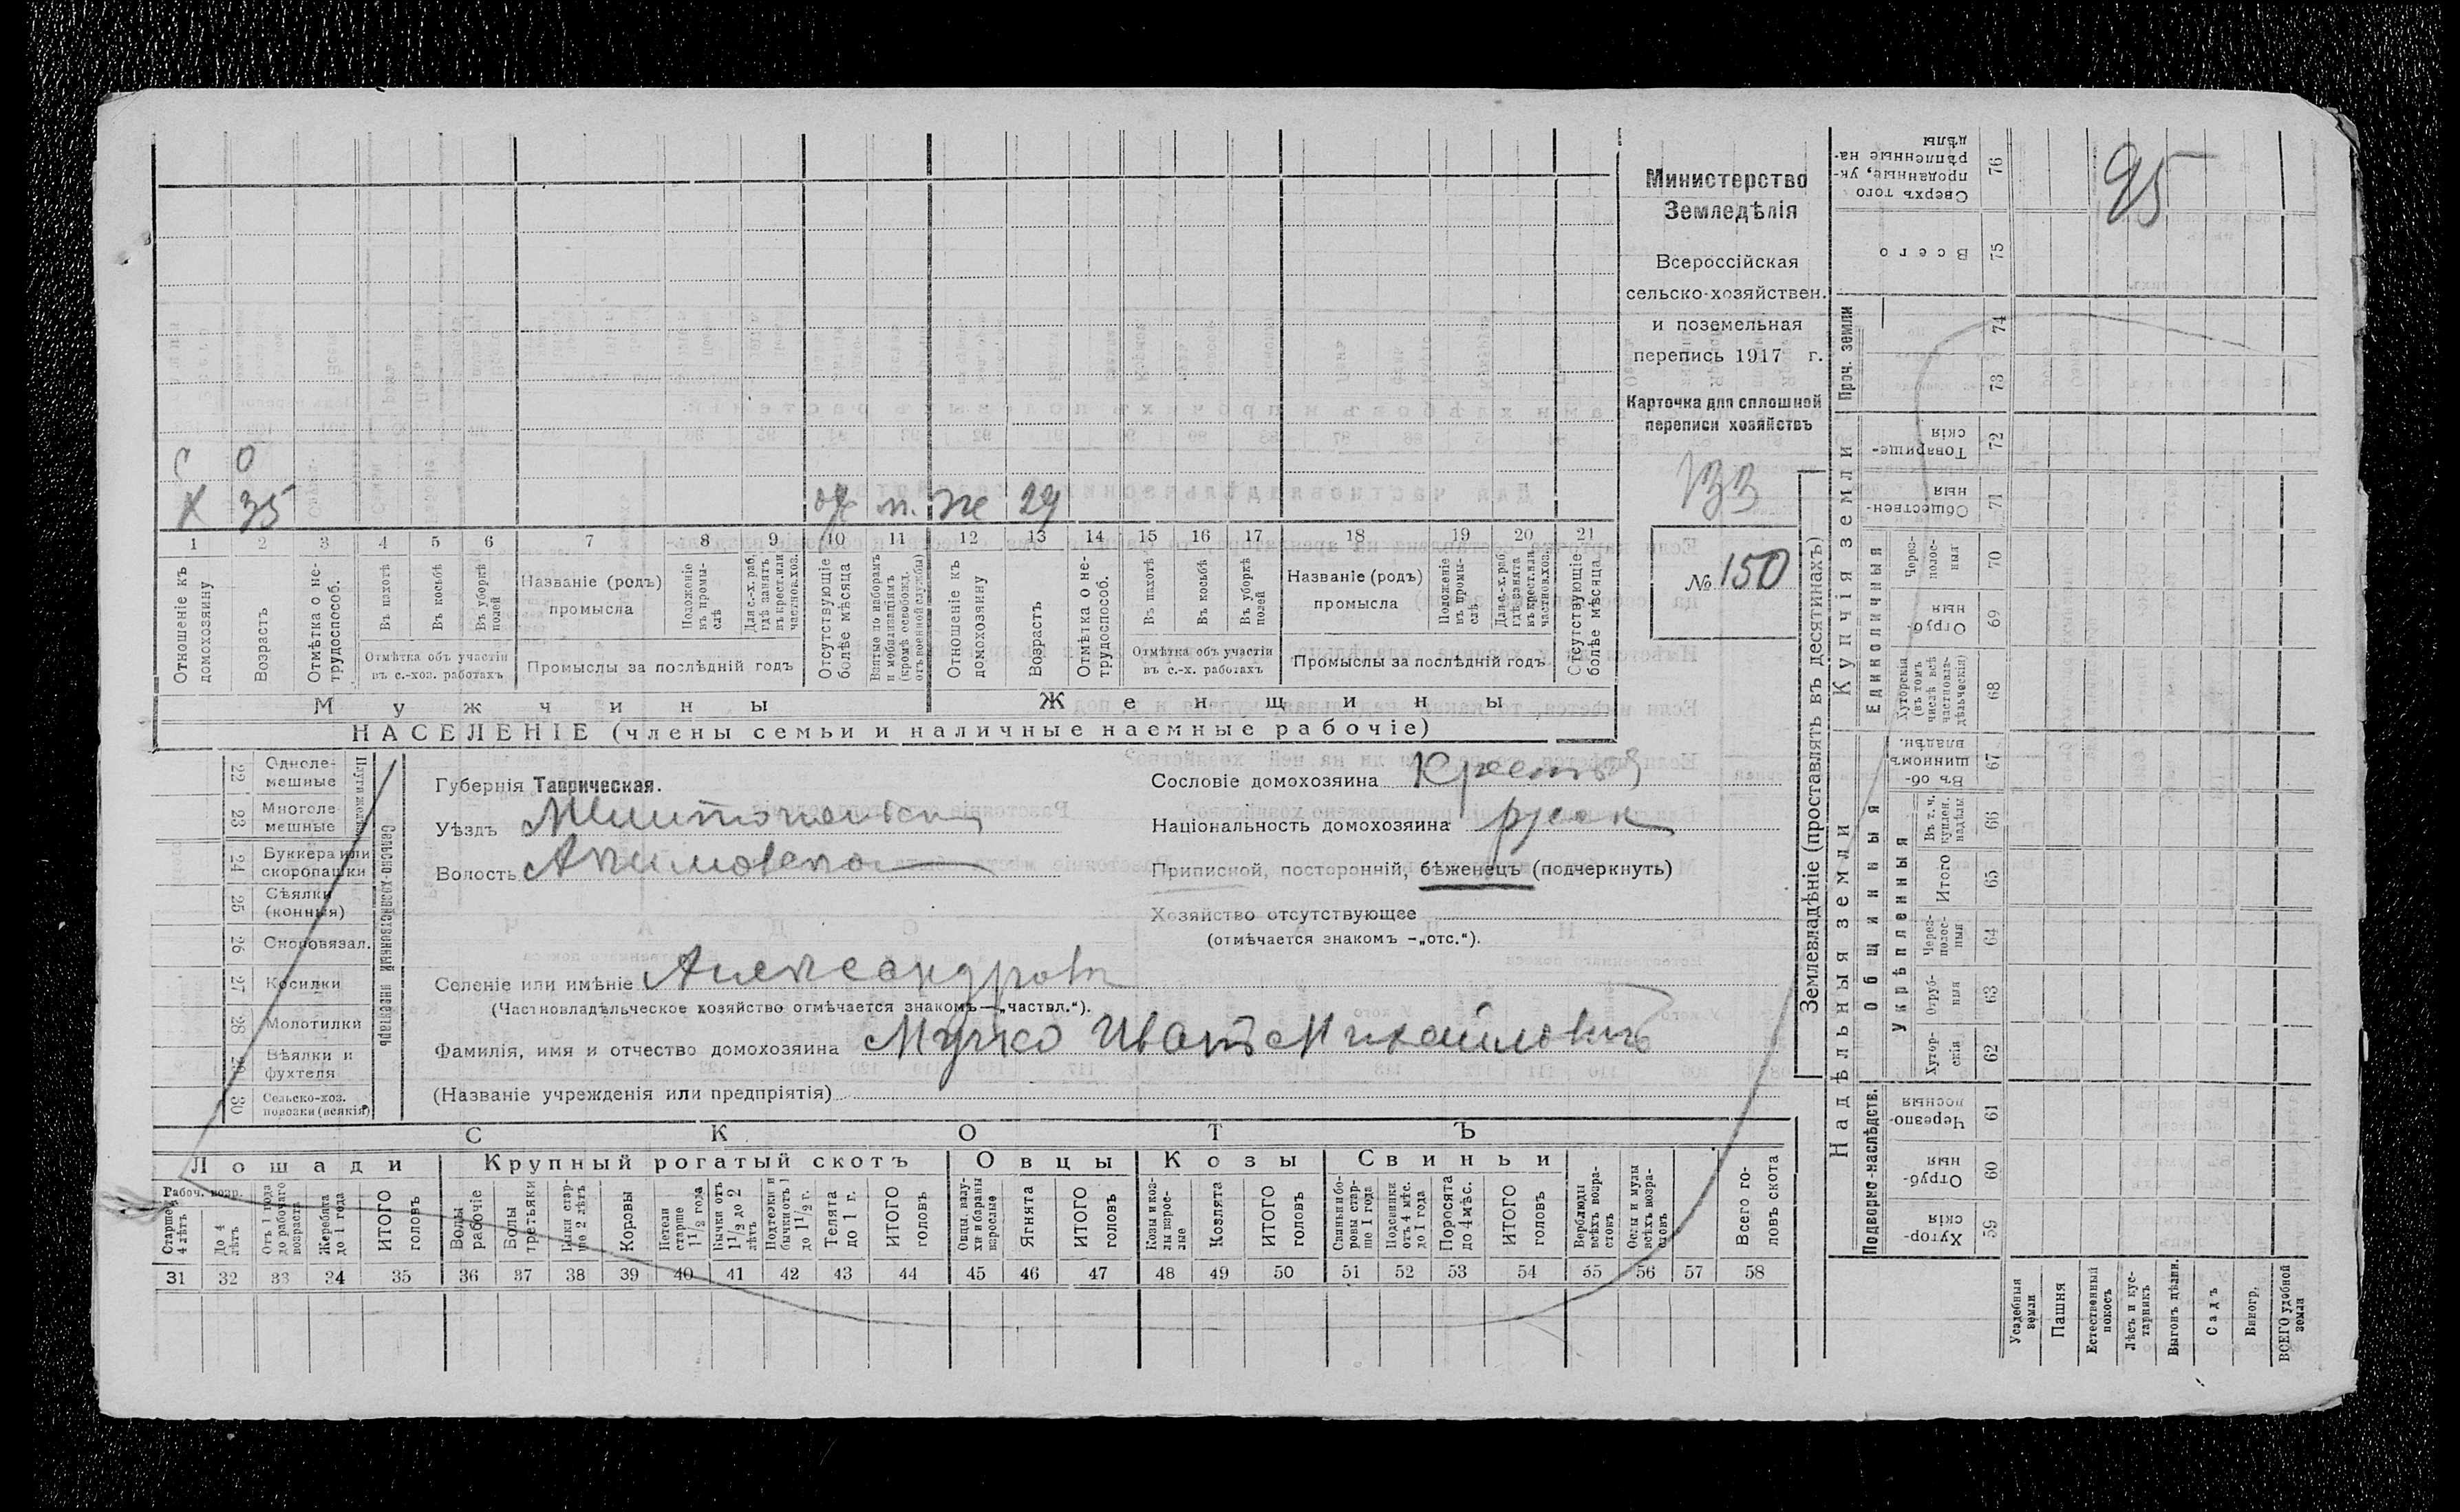 Министерство
Земледѣлія
Всероссійская
сельско-хозяйствен.
и поземельная
перепись 1917 г.
Карточка для сплошной
переписи хозяйствъ
133
№ 150
95
С 0
Х 35 п. же 29
1 2 3 4 5 6 7 8 9 10 11 12 13 14 15 16 17 18 19 20 21
Отношеніе къ домохозяину
Возрастъ
Отмѣтка о не-трудоспособ.
Въ пахотѣ
Въ косьбѣ
Въ уборкѣ полей
Отмѣтка объ участіи
въ с.-хоз. работахъ
Названіе (родъ)
промысла
Положеніе въ промы-слѣ
Для с.-х. раб. гдѣ занятъ въ крест. или частнов. хоз.
Промыслы за послѣдній годъ
Отсутствующіе болѣе мѣсяца
Взятые по наборамъ и мобилизаціямъ (кромѣ освобожд. отъ военной службы)
Отношеніе къ домохозяину
Возрастъ
Отмѣтка о не-трудоспособ.
Въ пахотѣ
Въ косьбѣ
Въ уборкѣ полей
Отмѣтка объ участіи
въ с.-х. работахъ
Названіе (родъ)
промысла
Положеніе въ промы-слѣ
Для с.-х. раб. гдѣ занята въ крест. или частнов. хоз.
Промыслы за послѣдній годъ
Отсутствующіе болѣе мѣсяца
Мужчины
Женщины
НАСЕЛЕНІЕ (члены семьи и наличные наемные рабочіе)
22 Одноле-мешные
23 Многоле мешные
24 Буккера или скоропашки
25 Сѣялки (конныя)
26 Сноповязал.
27 Косилки
28 Молотилки
29 Вѣялки и фухтеля
30 Сельско-хоз. повозки (всякія)
Сельско-хозяйственный инвентарь
Губернія Таврическая.
Уѣздъ Мелитопольскій
Волость Акимовская
Селеніе или имѣніе Александровка
(Частновладѣльческое хозяйство отмѣчается знакомъ—„частвл.“).
Фамилія, имя и отчество домохозяина Мучко Иванъ Михайловичъ
(Названіе учрежденія или предпріятія)
Сословіе домохозяина
Національность домохозяина русск
Приписной, посторонній, бѣженецъ (подчеркнуть)
Хозяйство отсутствующее
(отмѣчается знакомъ —„отс.“).
СКОТЪ
Лошади
Крупный рогатый скотъ
Овцы
Козы
Свиньи
Рабоч. возр.
Старше 4 лѣтъ
До 4 лѣтъ
Отъ 1 года до рабочаго возраста
Жеребята до 1 года
ИТОГО головъ
Волы рабочіе
Волы третьяки
Быки стар-ше 2 лѣтъ
Коровы
Нетели старше 1 1/2 года
Бычки отъ 1 1/2 до 2 лѣтъ
Подтелки и бычки отъ 1 до 1 1/2 г.
Телята до 1 г.
ИТОГО головъ
Овцы, валу-хи и бараны взрослые
Ягнята
ИТОГО головъ
Козы и коз-лы взрос-лые
Козлята
ИТОГО головъ
Свиньи и бо-ровы стар-ше 1 года
Подсвинки отъ 4 мѣс. до 1 года
Поросята до 4 мѣс.
ИТОГО головъ
Верблюды всѣхъ возра-стовъ
Ослы и мулы всѣхъ возра-стовъ
Всего го-ловъ скота
31 32 33 34 35 36 37 38 39 40 41 42 43 44 45 46 47 48 49 50 51 52 53 54 55 56 57 58
Землевладѣніе (проставлять въ десятинахъ)
Надѣльныя земли
Купчія земли
Проч. земли
Подворно-наслѣдств.
Общинныя
Укрѣпленныя
Единоличныя
Хутор-скія 59
Отруб-ныя 60
Черезпо-лосныя 61
Хутор-скія 62
Отруб-ныя 63
Через-полос-ныя 64
Итого 65
Въ т. ч. куплен. надѣлы 66
Въ об-щинномъ владѣн. 67
Хуторскія (въ томъ числѣ всѣ частновла-дѣльческія) 68
Отруб-ныя 69
Через-полос-ныя 70
Обществен-ныя 71
Товарище-скія 72
73
74
Всего 75
Сверхъ того проданные, ук-рѣпленные на-дѣлы 76
Усадебныя земли
Пашня
Естественный покосъ
Лѣсъ и кус-тарникъ
Выгонъ дѣлян.
Садъ
Виногр.
ВСЕГО удобной земли